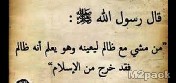 قال رسول الله ﷺ :
"من مشى مع ظالم ليعينه وهو يعلم أنه ظالم
فقد خرج من الإسلام"